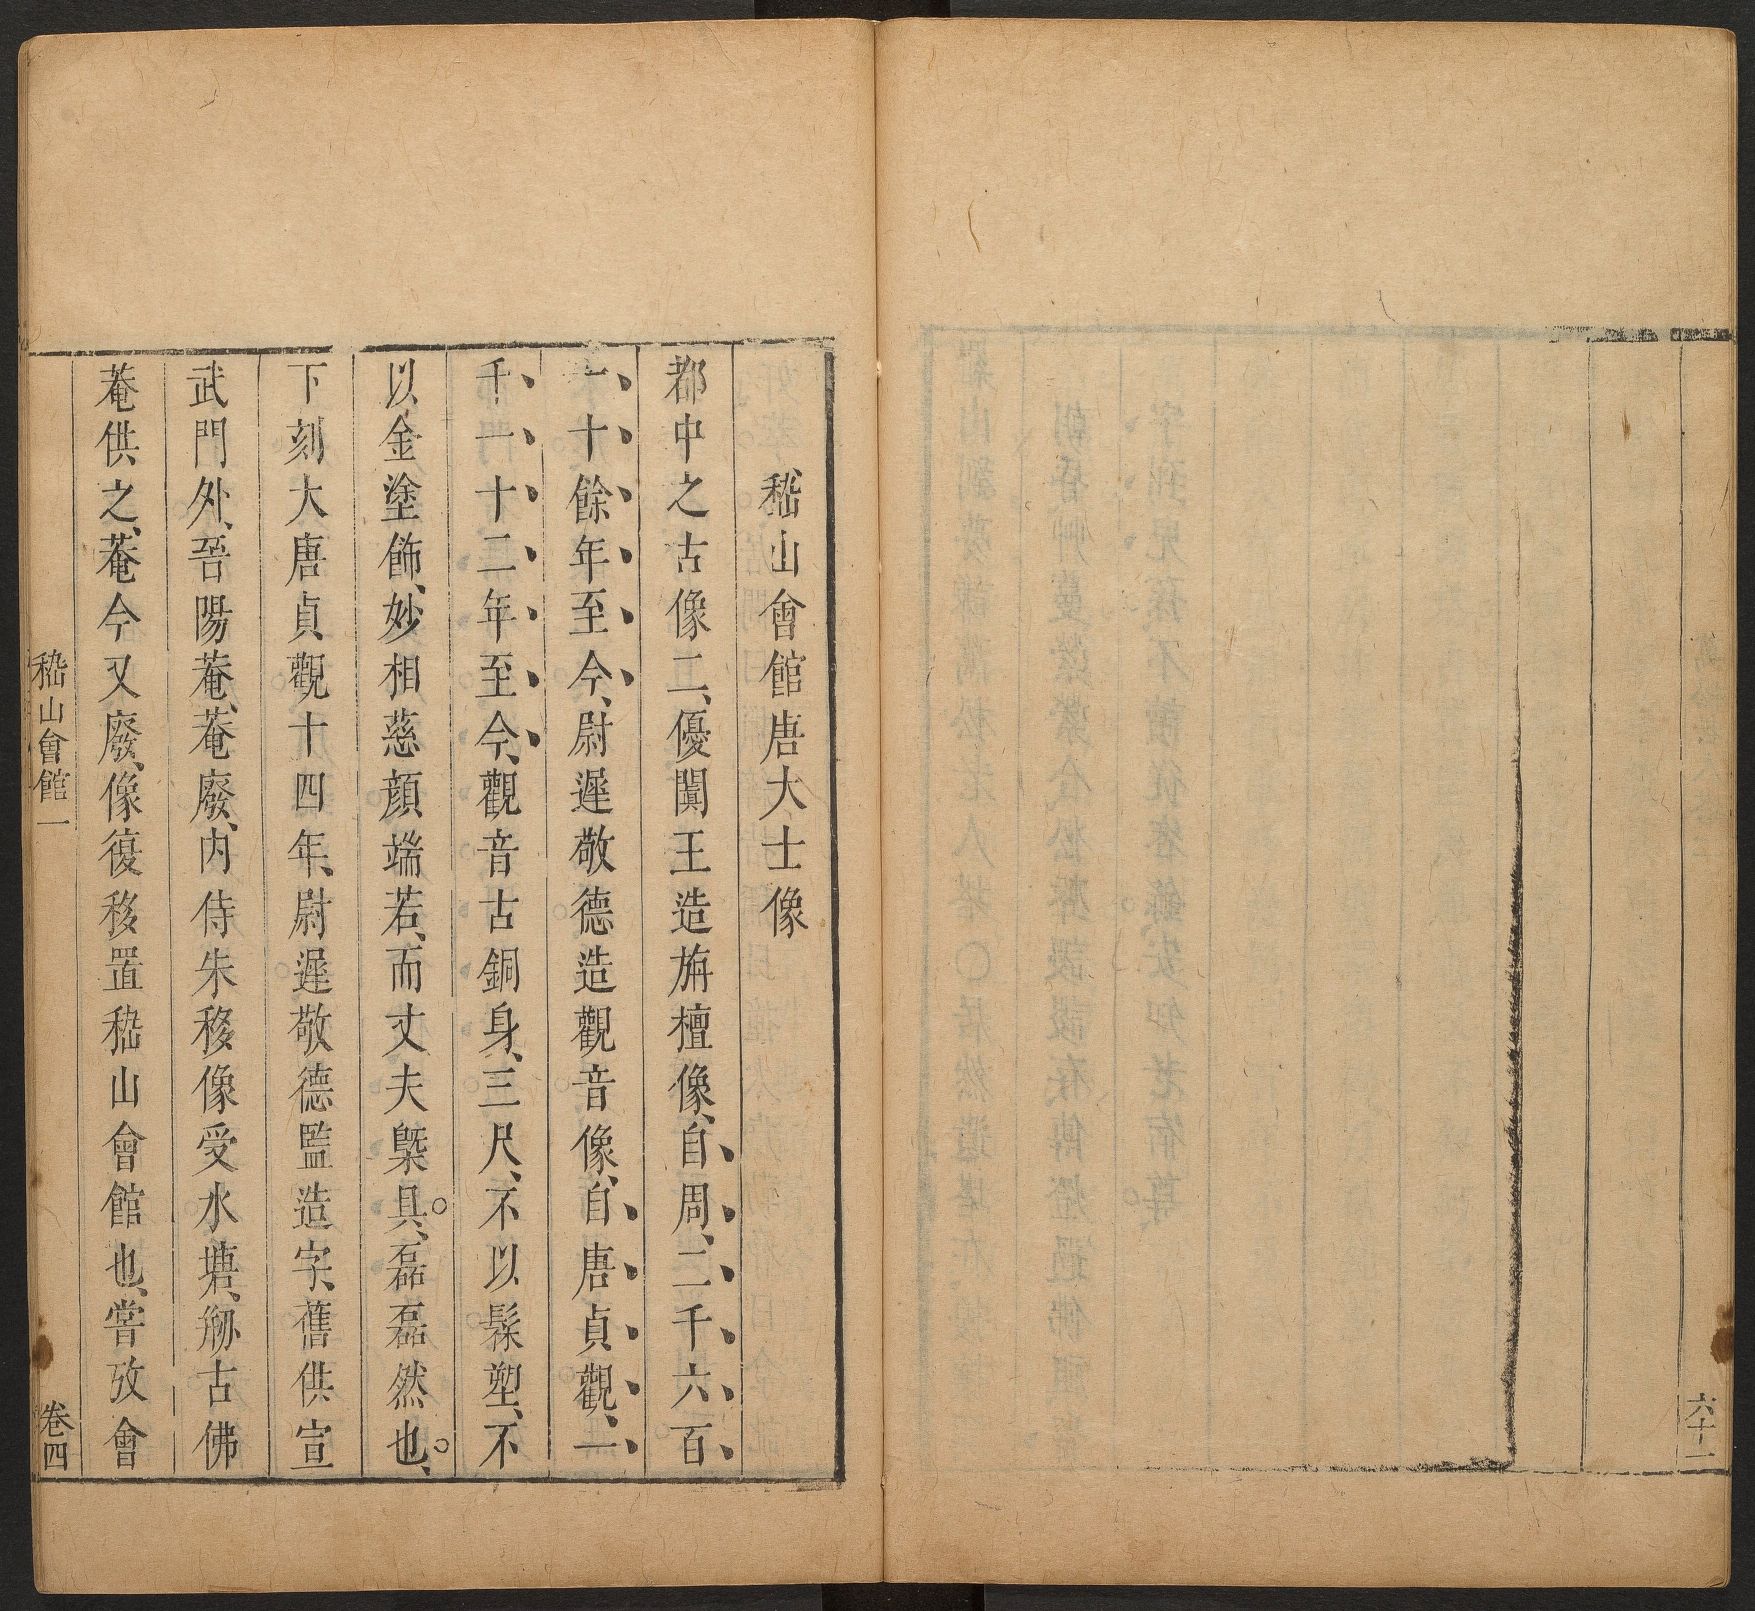 六十二
嵇山會館唐大士像
都中之古像二、優闐王造旃檀像、自周、二千六百
一十餘年至今、尉遲敬德造觀音像、自唐貞觀、一
千一十二年至今、觀音古銅身、三尺、不以髹塑、不
以金塗飾、妙相慈顏端若、而丈夫槩具、磊磊然也、
下刻大唐貞觀十四年、尉遲敬德監造字、舊供宣
武門外、晉陽菴、菴廢、內侍朱移像受水塘、刱古佛
菴供之、菴今又廢、像復移置嵇山會館也、嘗攷會
嵇山會館一 卷四